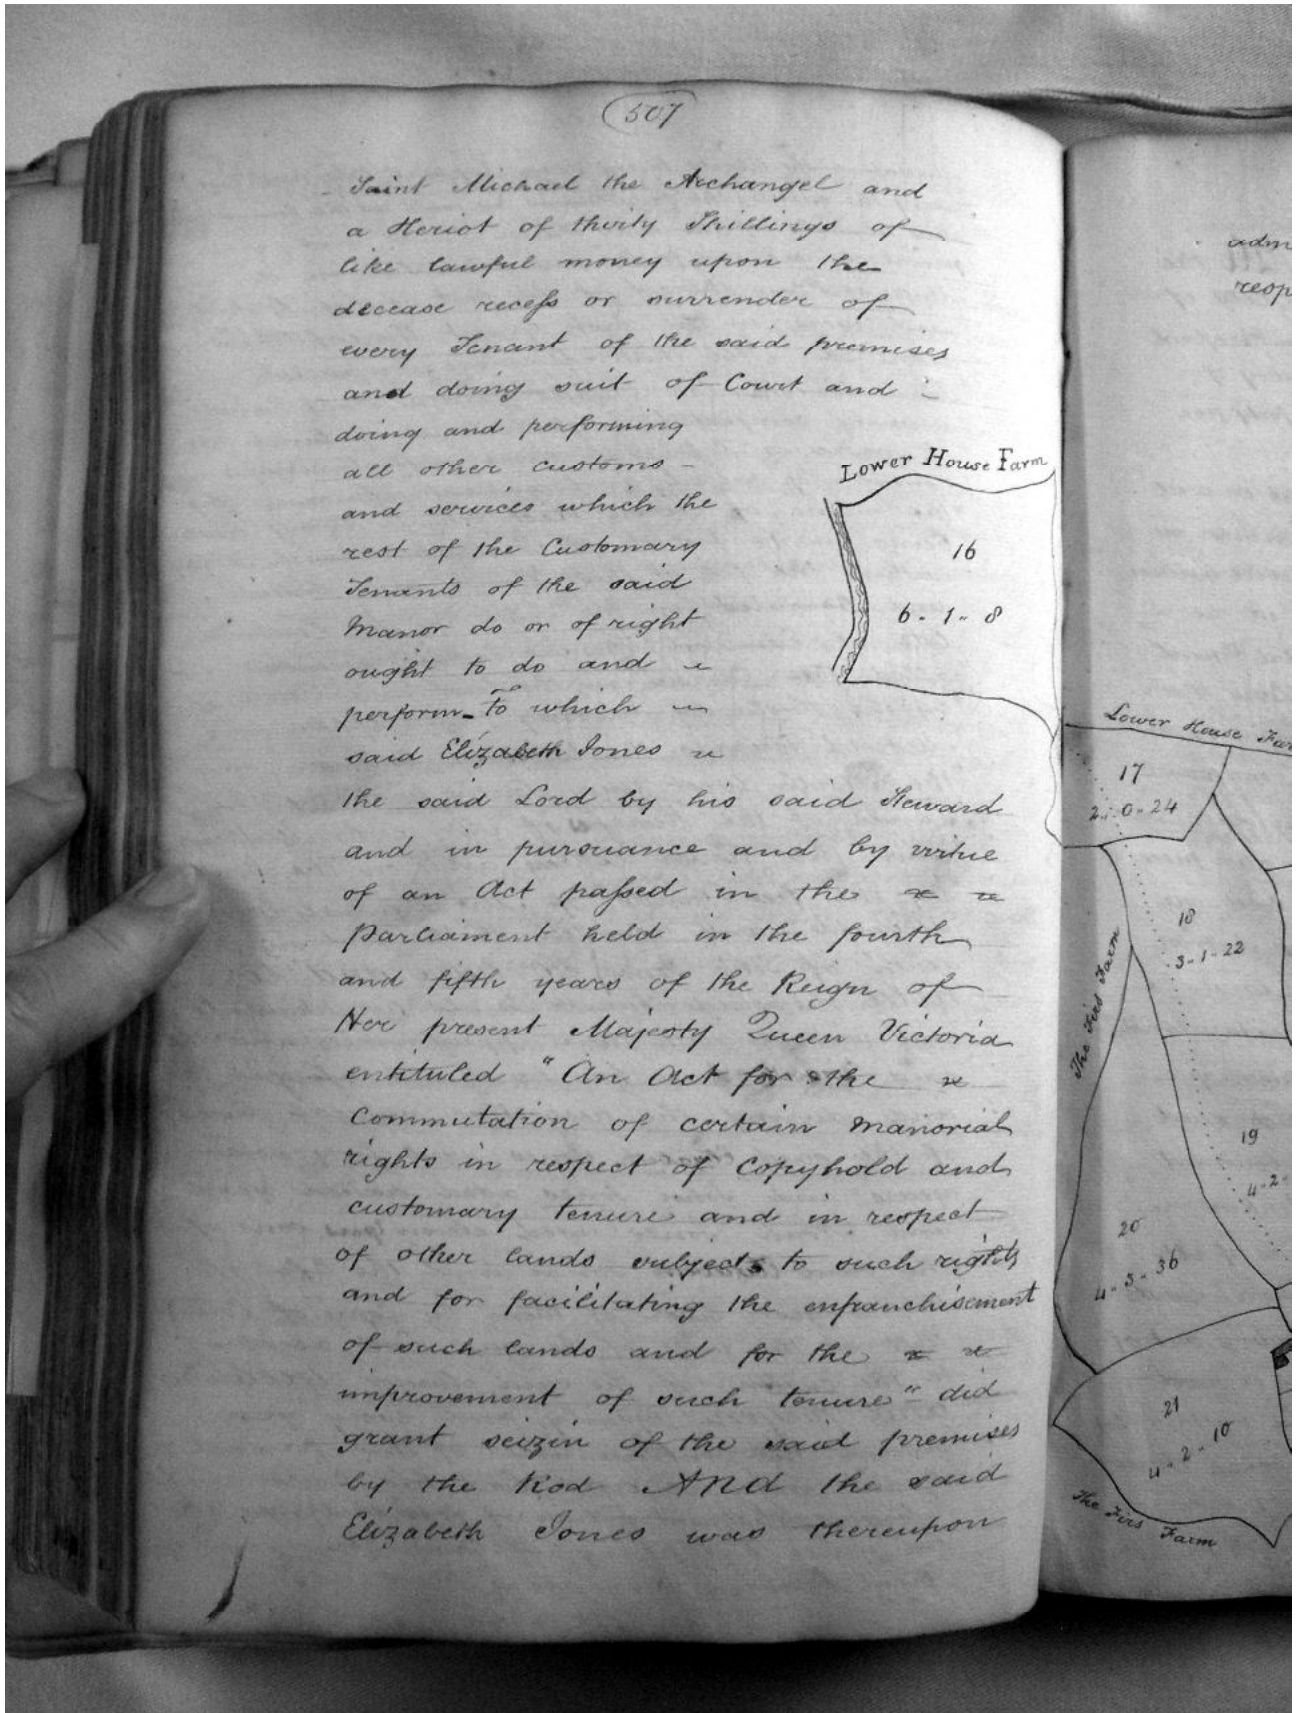 507
Saint Michael the Archangel and
a Heriot of thirty Shillings of
like lawful money upon the
decease recess or surrender of
every Tenant of the said premises
and doing suit of Court and
doing and performing
all other customs
and services which the
rest of the Customary
Tenants of the said
Manor do or of right
ought to do and
perform - To which
said Elizabeth Jones
the said Lord by his said Steward
and in pursuance and by virtue
of an Act passed in the
Parliament held in the fourth
and fifth years of the Reign of
Her present Majesty Queen Victoria
entituled "An Act for the
Commutation of certain manorial
rights in respect of Copyhold and
customary tenure and in respect
of other lands subject to such rights
and for facilitating the enfranchisement
of such lands and for the
improvement of such tenure" did
grant seizin of the said premises
by the Rod AND the said
Elizabeth Jones was thereupon
Lower House Farm
16
6 - 1 - 8
adm
resp
Lower House Far
17
2 - 0 - 24
18
3 - 1 - 22
The Firs Farm
19
4 - 2 -
20
4 - 3 - 36
21
4 - 2 - 10
The Firs Farm